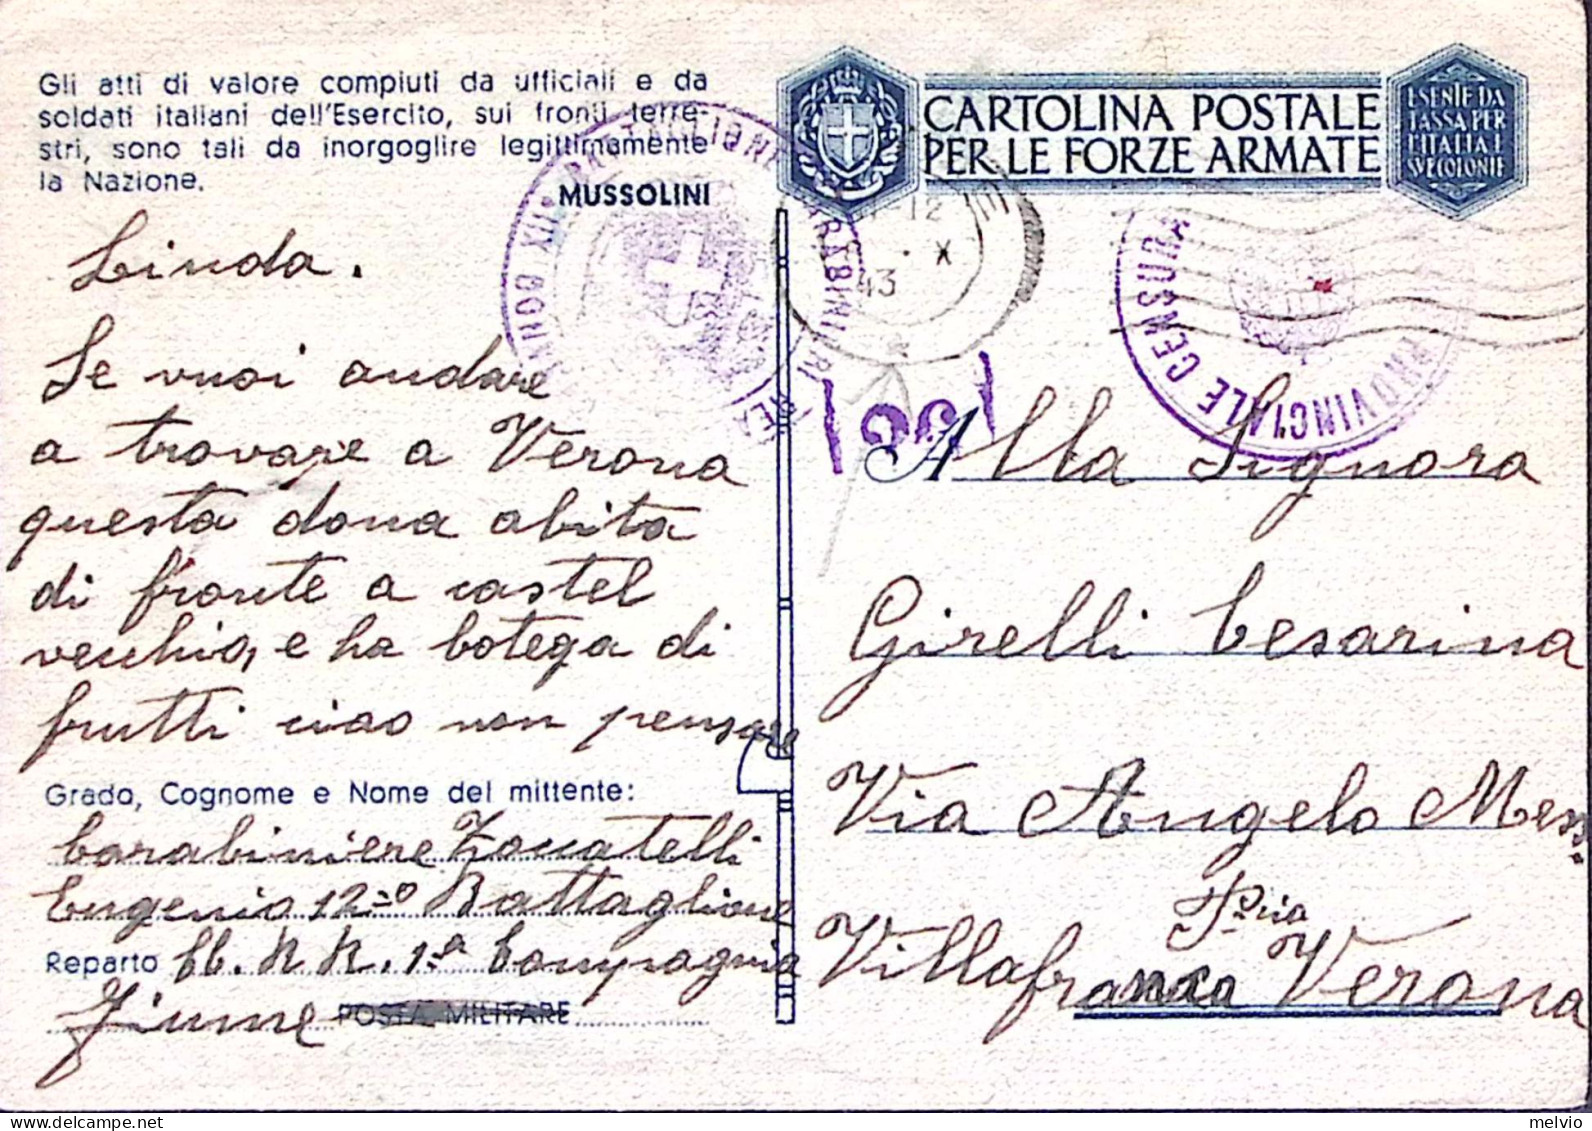 Gli atti di valore compiuti da ufficiali e da
soldati italiani dell'Esercito, sui fronti terre-
stri, sono tali da inorgoglire legittimamente
la Nazione.
MUSSOLINI
Linda.
Se vuoi andare
a trovare a Verona
questa dona abita
di fronte a castel
vecchio, e ha botega di
frutti ciao non pensare
Grado, Cognome e Nome del mittente:
Carabiniere Zoccatelli
Eugenio 12º Battaglione
Reparto CC. RR. 1ª Compagnia
Fiume POSTA MILITARE
CARTOLINA POSTALE
PER LE FORZE ARMATE
ESENTE DA
TASSA PER
L'ITALIA E
SUE COLONIE
12
X
43
PROVINCIALE CENSURA
Alla Signora
Girelli Cesarina
Via Angelo Mess.
Pria
Villafranca Verona
melvio